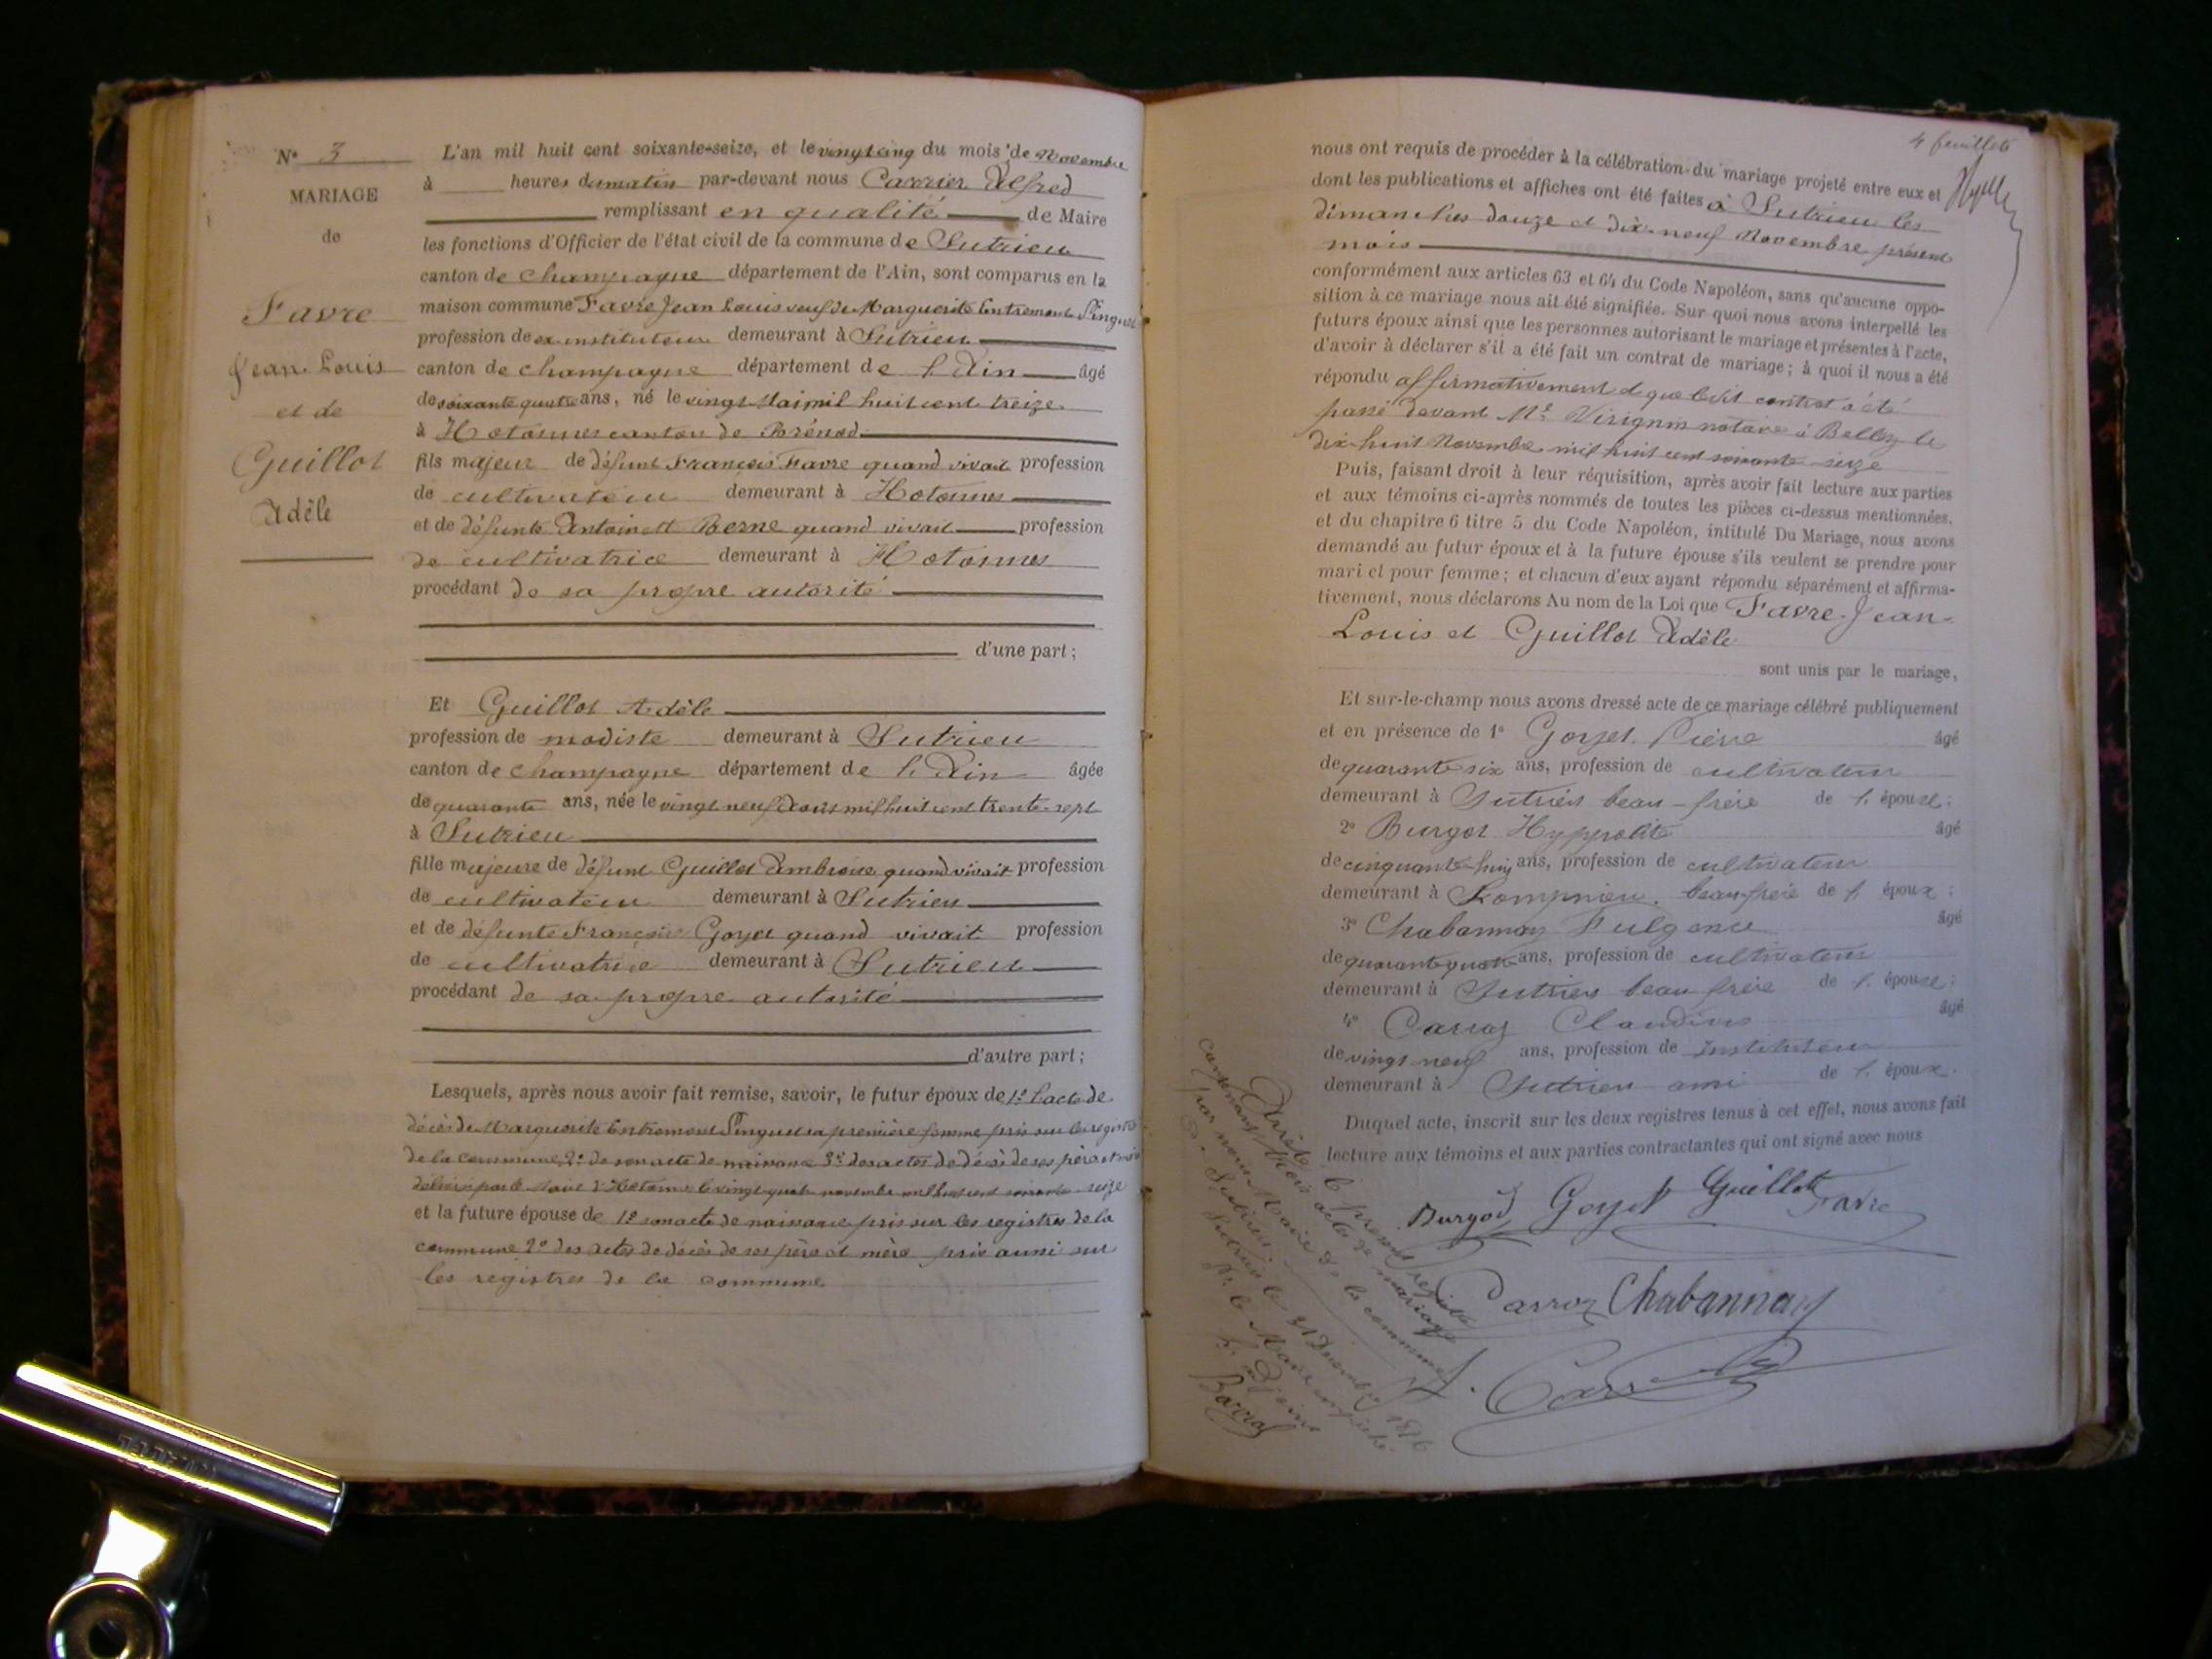 N° 3
MARIAGE
de
Favre
Jean Louis
et de
Guillot
Adèle
L'an mil huit cent soixante-seize, et le vingt cinq du mois de Novembre
à heures du matin par-devant nous Carrier Alfred
remplissant en qualité de Maire
les fonctions d'Officier de l'état civil de la commune de Sutrieu
canton de Champagne département de l'Ain, sont comparus en la
maison commune Favre Jean Louis veuf de Marguerite Entremont Pinguet
profession de ex instituteur demeurant à Sutrieu
canton de Champagne département de l'Ain âgé
de soixante quatre ans, né le vingt Mai mil huit cent treize
à Hotonnes canton de Brénod
fils majeur de défunt François Favre quand vivait profession
de cultivateur demeurant à Hotonnes
et de défunte Antoinett Berne quand vivait profession
de cultivatrice demeurant à Hotonnes
procédant de sa propre autorité
d'une part ;
Et Guillot Adèle
profession de modiste demeurant à Sutrieu
canton de Champagne département de l'Ain âgée
de quarante ans, née le vingt neuf mil huit cent trente sept
à Sutrieu
fille majeure de défunt Guillot Ambroise quand vivait profession
de cultivateur demeurant à Sutrieu
et de défunte Goyet quand vivait profession
de cultivatrice demeurant à Sutrieu
procédant de sa propre autorité
d'autre part ;
Lesquels, après nous avoir fait remise, savoir, le futur époux de 1° l'acte de
décès de Marguerite Entremont Pinguet sa première femme pris sur les registres
de la commune, 2° de son acte de naissance 3° des actes de décès de ses père et mère
délivrés par le Maire d'Hotonnes le vingt quatre novembre mil huit cent soixante seize
et la future épouse de 1° son acte de naissance pris sur les registres de la
commune 2° des actes de décès de ses père et mère pris aussi sur
les registres de la commune
4 feuillets
nous ont requis de procéder à la célébration du mariage projeté entre eux et
dont les publications et affiches ont été faites à Sutrieu les
dimanches douze et dix-neuf Novembre présent
mois
conformément aux articles 63 et 64 du Code Napoléon, sans qu'aucune oppo-
sition à ce mariage nous ait été signifiée. Sur quoi nous avons interpellé les
futurs époux ainsi que les personnes autorisant le mariage et présentes à l'acte,
d'avoir à déclarer s'il a été fait un contrat de mariage ; à quoi il nous a été
répondu affirmativement et que ledit contrat a été
passé devant Me Virignin notaire à Belley le
dix-huit Novembre mil huit cent soixante-seize
Puis, faisant droit à leur réquisition, après avoir fait lecture aux parties
et aux témoins ci-après nommés de toutes les pièces ci-dessus mentionnées,
et du chapitre 6 titre 5 du Code Napoléon, intitulé Du Mariage, nous avons
demandé au futur époux et à la future épouse s'ils veulent se prendre pour
mari et pour femme ; et chacun d'eux ayant répondu séparément et affirma-
tivement, nous déclarons Au nom de la Loi que Favre Jean
Louis et Guillot Adèle
sont unis par le mariage,
Et sur-le-champ nous avons dressé acte de ce mariage célébré publiquement
et en présence de 1° Goyet Pierre âgé
de quarante six ans, profession de cultivateur
demeurant à Sutrieu beau-frère de l'épouse ;
2° Burgod Hyppolite âgé
de cinquante-huit ans, profession de cultivateur
demeurant à Lompnieu beau-frère de l'époux ;
3° Chabannay Fulgence âgé
de quarante quatre ans, profession de cultivateur
demeurant à Sutrieu beau frère de l'épouse ;
4° Carraz Claudius âgé
de vingt neuf ans, profession de Instituteur
demeurant à Sutrieu ami de l'époux.
Duquel acte, inscrit sur les deux registres tenus à cet effet, nous avons fait
lecture aux témoins et aux parties contractantes qui ont signé avec nous
Burgod Goyet Guillot Favre
Chabannay
Arrêté le présent registre
contenant trois actes de mariage
par nous Maire de la commune
de Sutrieu.
Sutrieu le 31 Décembre 1876
Pr. le Maire empêché
L'adjoint